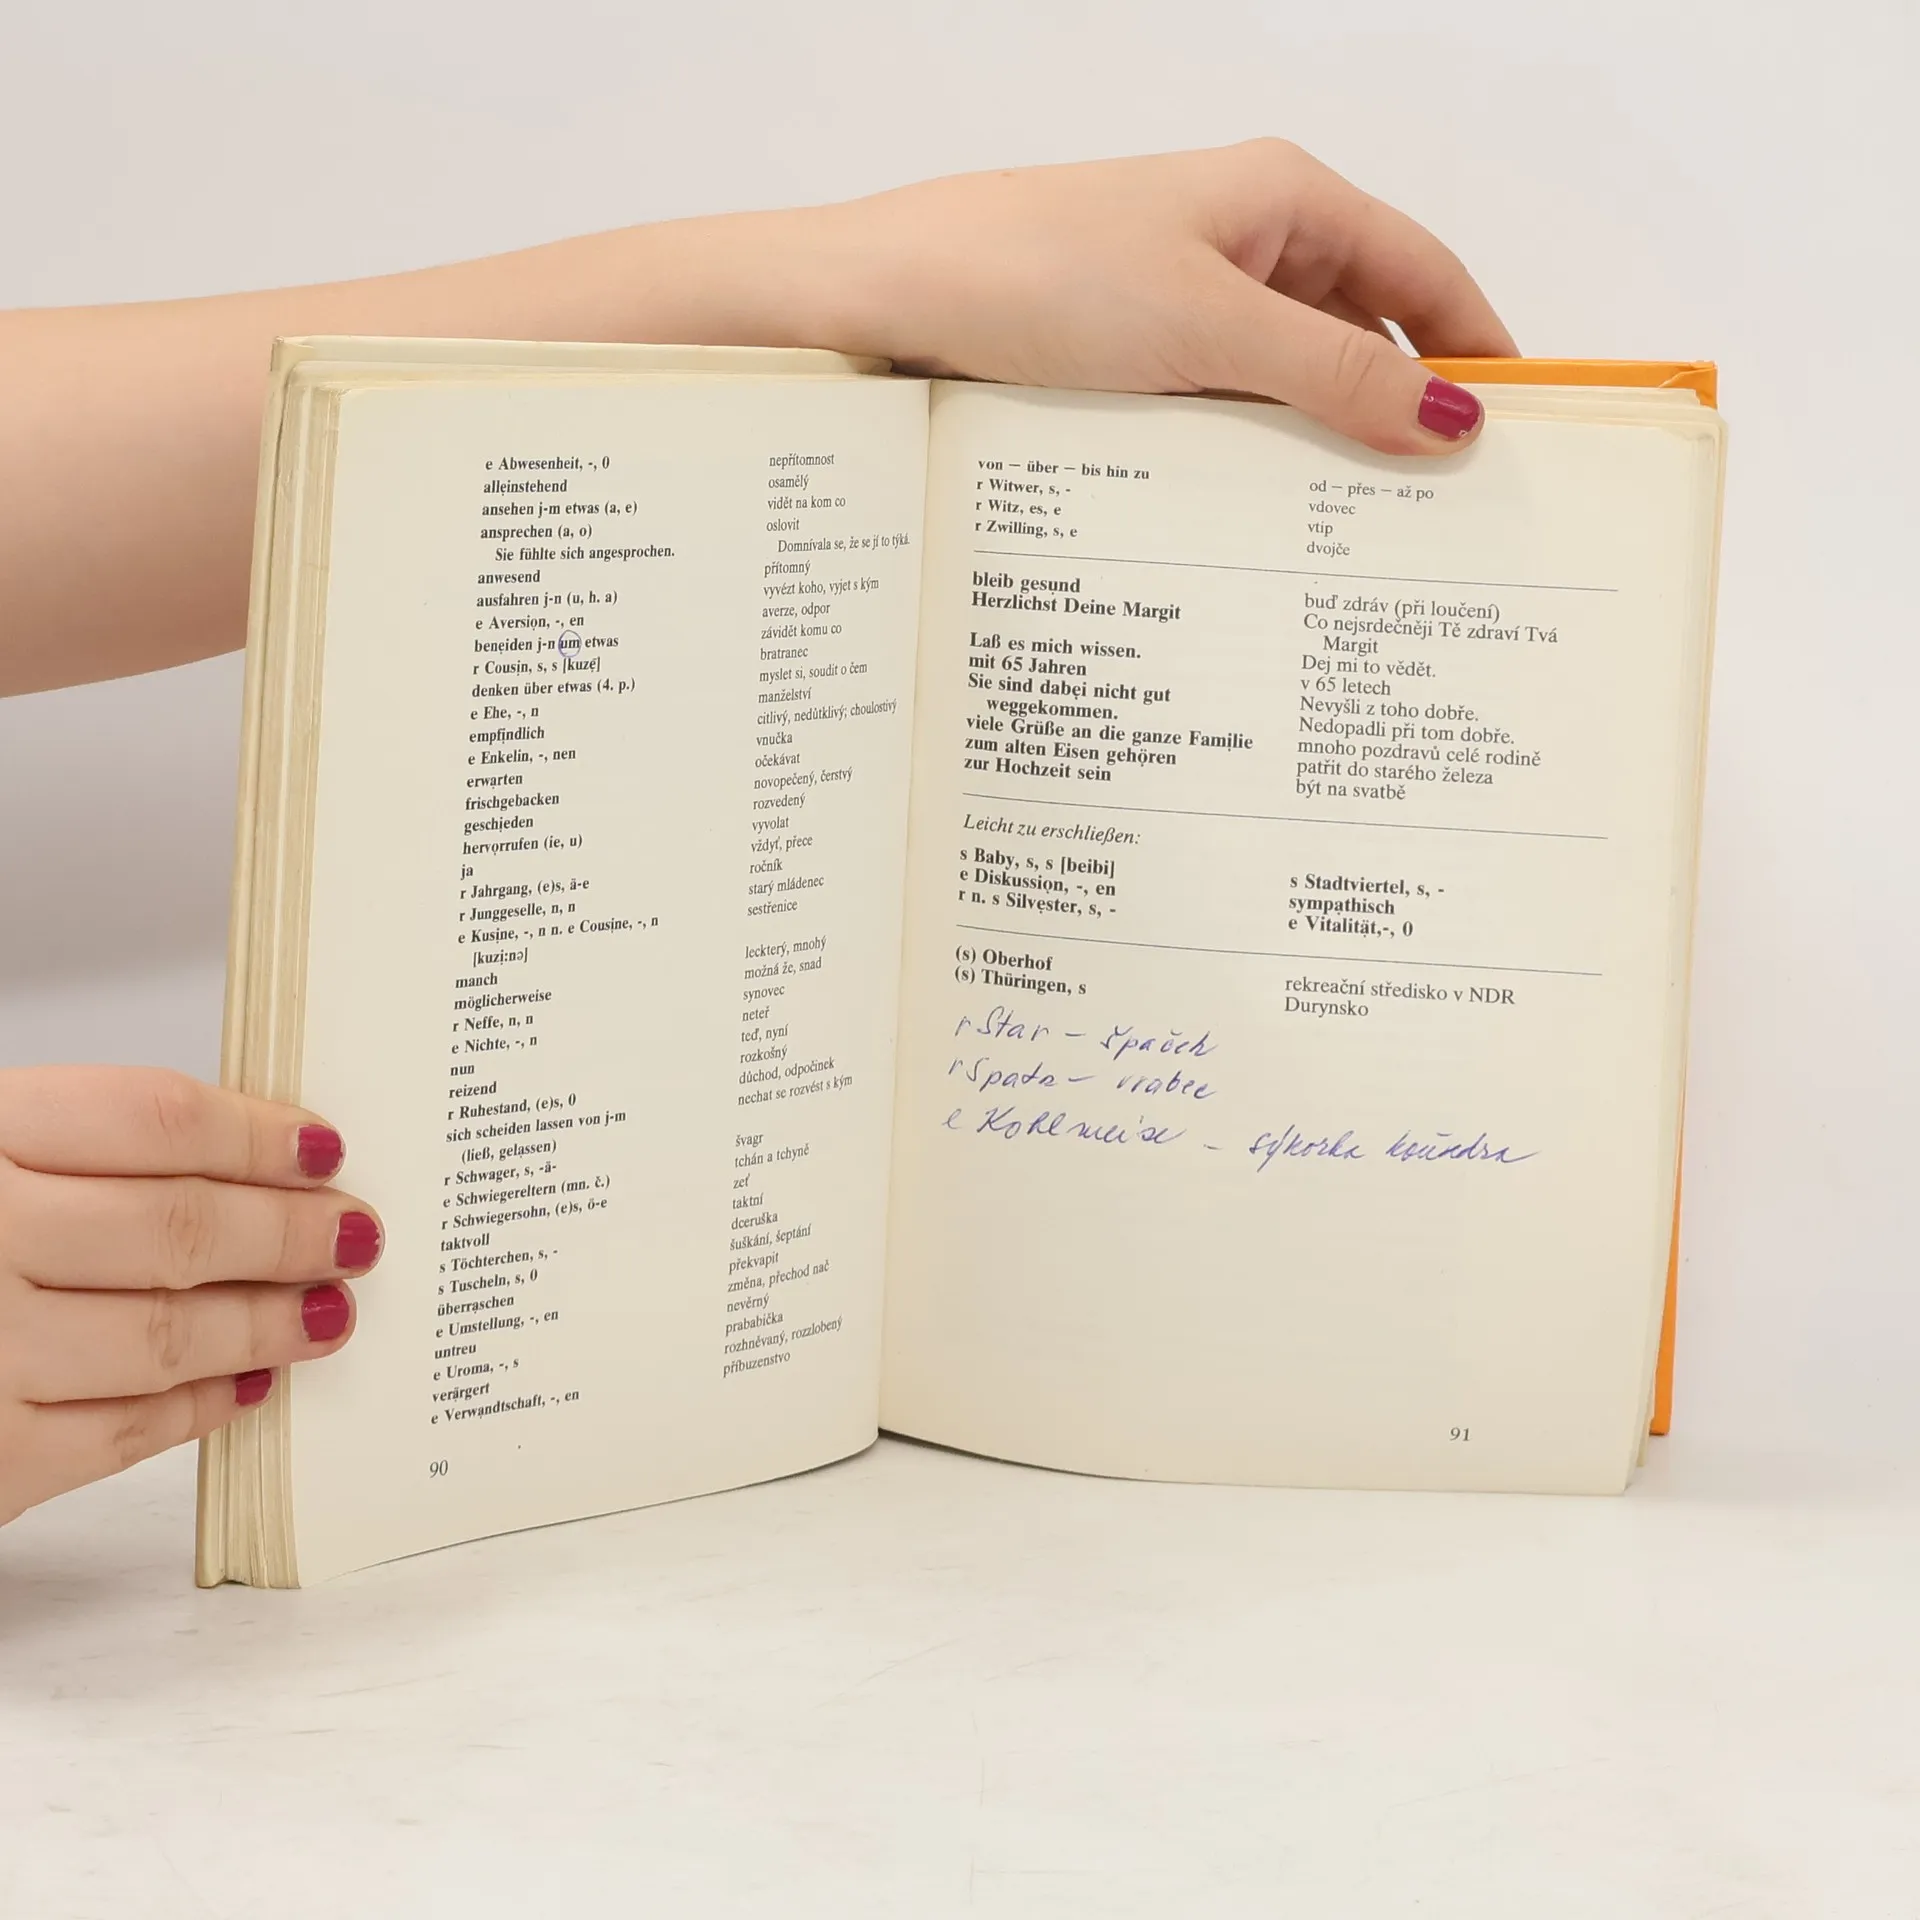 e Abwesenheit, -, 0
alleinstehend
ansehen j-m etwas (a, e)
ansprechen (a, o)
Sie fühlte sich angesprochen.
anwesend
ausfahren j-n (u, h. a)
e Aversion, -, en
beneiden j-n um etwas
r Cousin, s, s [kuzẽ]
denken über etwas (4. p.)
e Ehe, -, n
empfindlich
e Enkelin, -, nen
erwarten
frischgebacken
geschieden
hervorrufen (ie, u)
ja
r Jahrgang, (e)s, ä-e
r Junggeselle, n, n
e Kusine, -, n n. e Cousine, -, n
[kuzi:nə]
manch
möglicherweise
r Neffe, n, n
e Nichte, -, n
nun
reizend
r Ruhestand, (e)s, 0
sich scheiden lassen von j-m
(ließ, gelassen)
r Schwager, s, -ä-
e Schwiegereltern (mn. č.)
r Schwiegersohn, (e)s, ö-e
taktvoll
s Töchterchen, s, -
s Tuscheln, s, 0
überraschen
e Umstellung, -, en
untreu
e Uroma, -, s
verärgert
e Verwandtschaft, -, en
nepřítomnost
osamělý
vidět na kom co
oslovit
Domnívala se, že se jí to týká.
přítomný
vyvézt koho, vyjet s kým
averze, odpor
závidět komu co
bratranec
myslet si, soudit o čem
manželství
citlivý, nedůtklivý; choulostivý
vnučka
očekávat
novopečený, čerstvý
rozvedený
vyvolat
vždyť, přece
ročník
starý mládenec
sestřenice
leckterý, mnohý
možná že, snad
synovec
neteř
teď, nyní
rozkošný
důchod, odpočinek
nechat se rozvést s kým
švagr
tchán a tchyně
zeť
taktní
dceruška
šuškání, šeptání
překvapit
změna, přechod nač
nevěrný
prababička
rozhněvaný, rozzlobený
příbuzenstvo
90
von – über – bis hin zu
r Witwer, s, -
r Witz, es, e
r Zwilling, s, e
od – přes – až po
vdovec
vtip
dvojče
bleib gesund
Herzlichst Deine Margit
Laß es mich wissen.
mit 65 Jahren
Sie sind dabei nicht gut
weggekommen.
viele Grüße an die ganze Familie
zum alten Eisen gehören
zur Hochzeit sein
buď zdráv (při loučení)
Co nejsrdečněji Tě zdraví Tvá
Margit
Dej mi to vědět.
v 65 letech
Nevyšli z toho dobře.
Nedopadli při tom dobře.
mnoho pozdravů celé rodině
patřit do starého železa
být na svatbě
Leicht zu erschließen:
s Baby, s, s [beibi]
e Diskussion, -, en
r n. s Silvester, s, -
s Stadtviertel, s, -
sympathisch
e Vitalität,-, 0
(s) Oberhof
(s) Thüringen, s
rekreační středisko v NDR
Durynsko
r Star – špaček
r Spatz – vrabec
e Kohlmeise – sýkorka koňadra
91